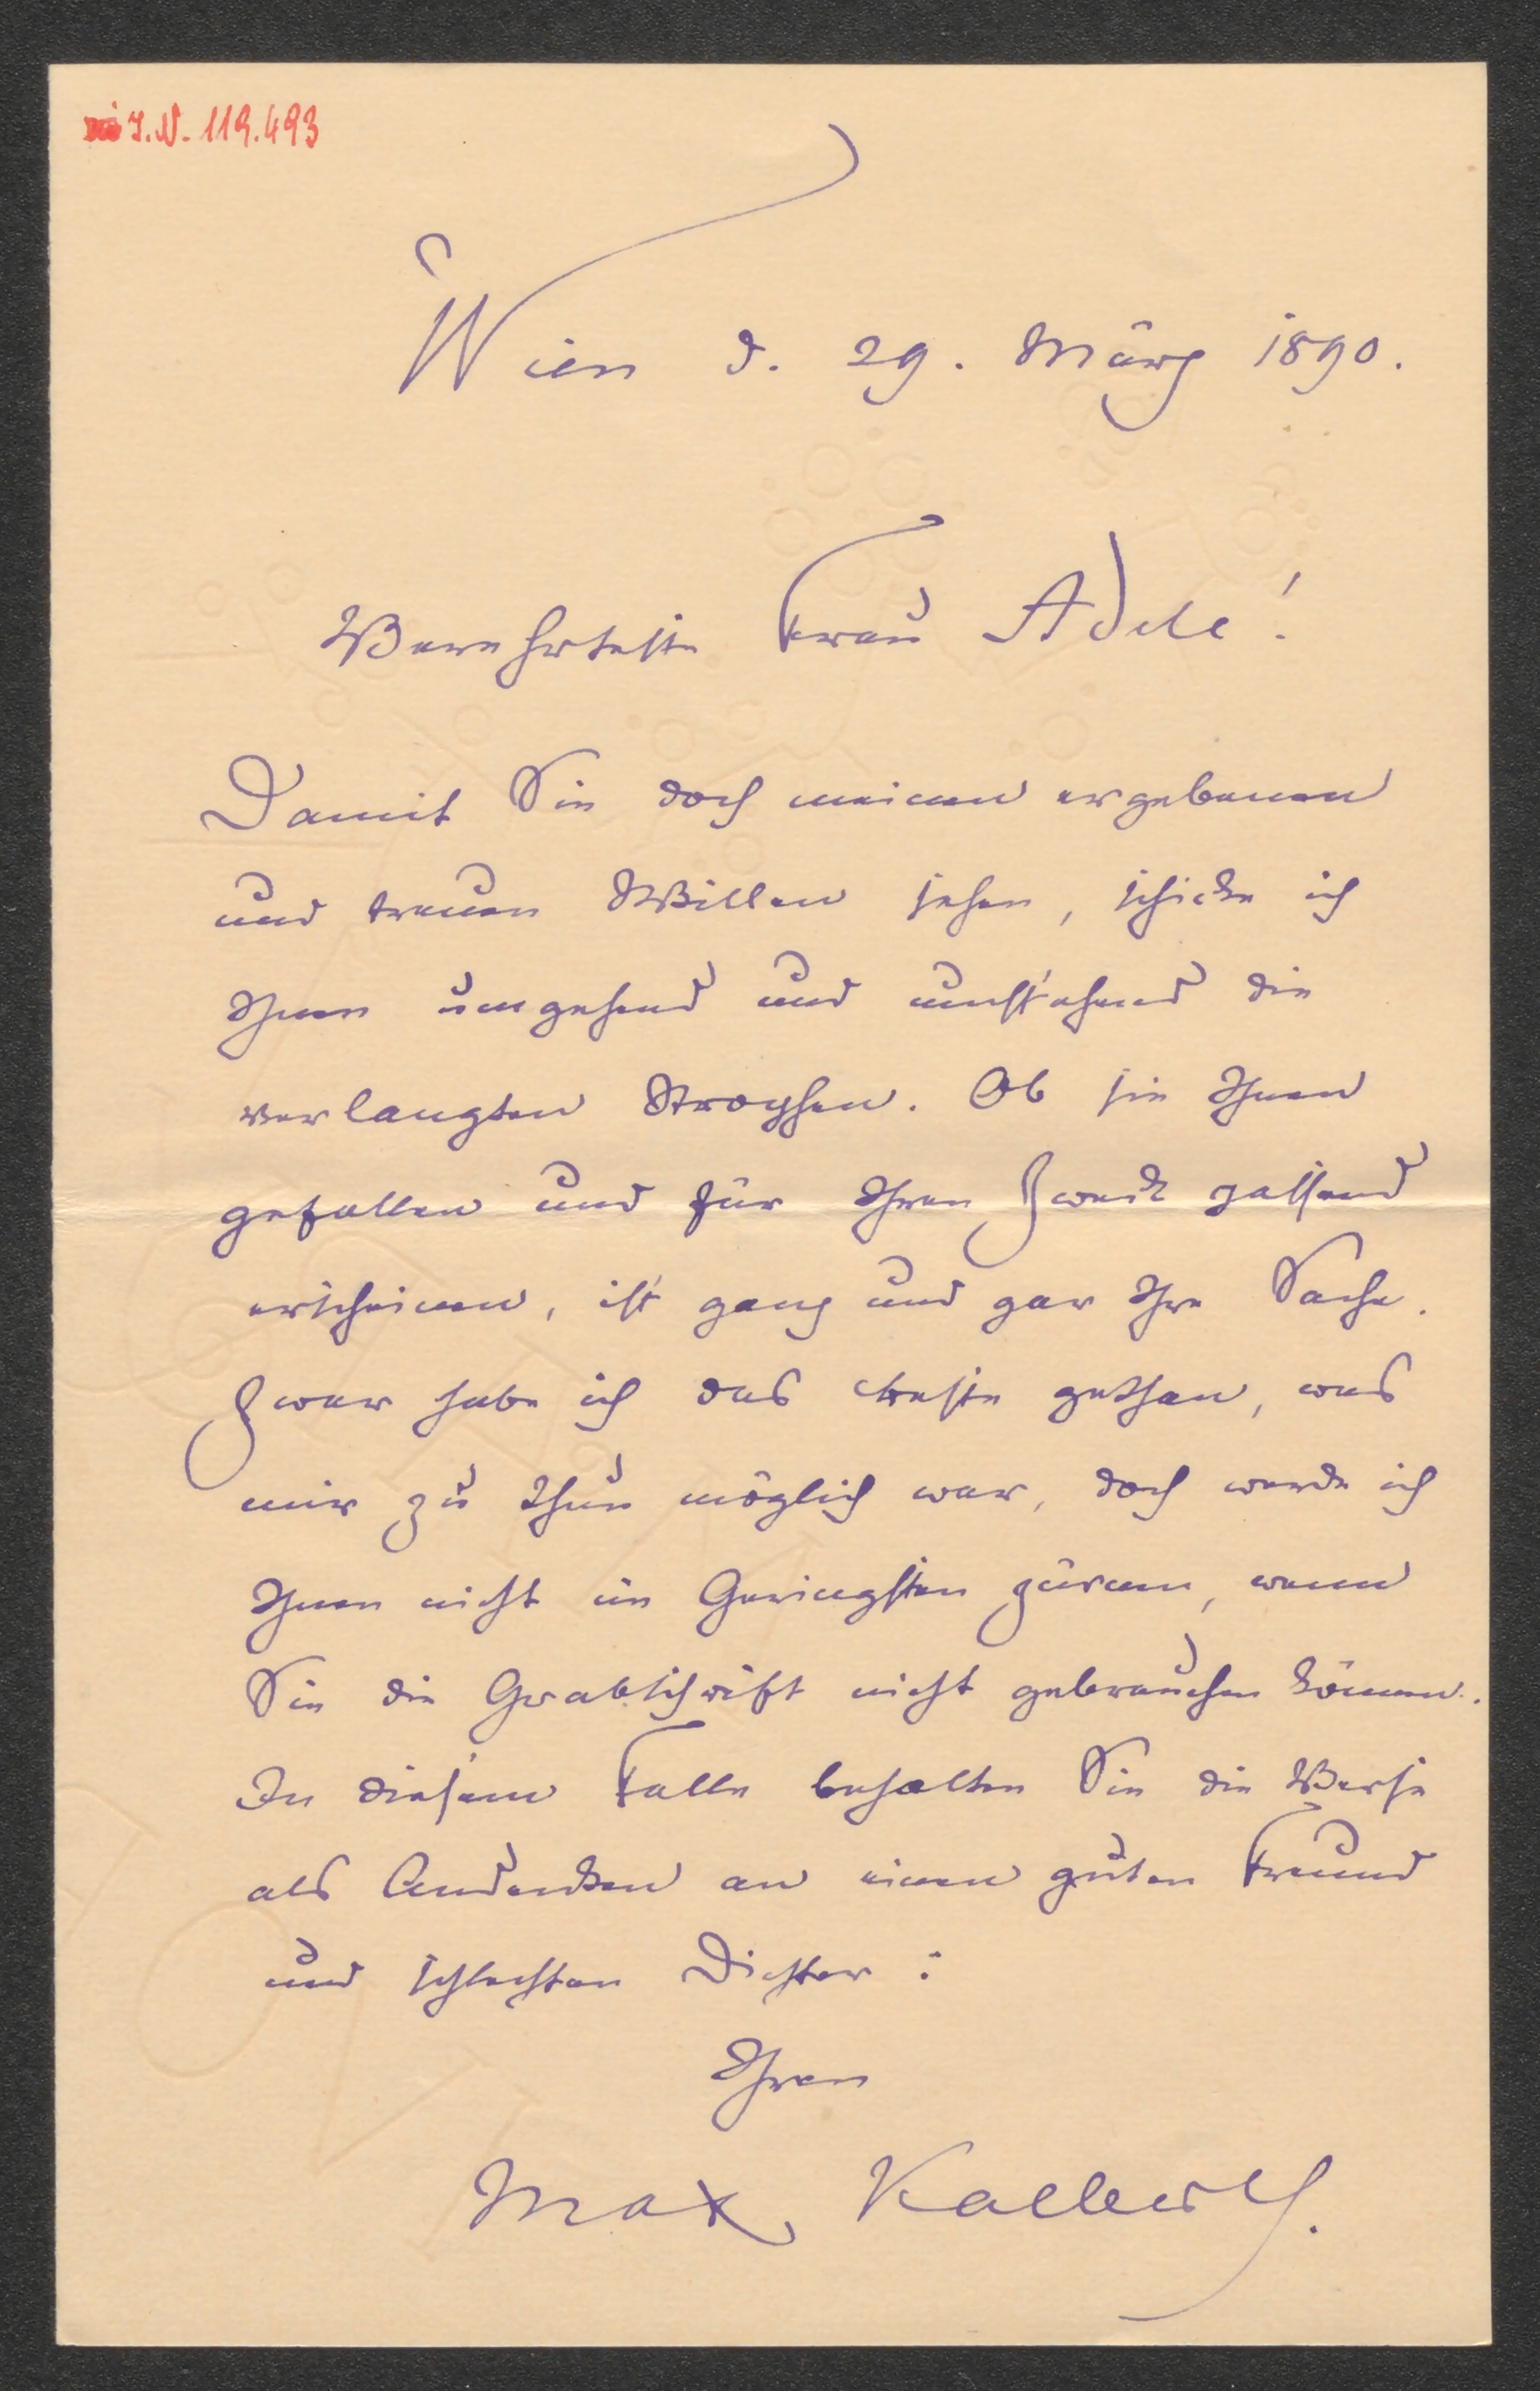 I.N. 119.493
Wien d. 29. März 1890.
Verehrteste Frau Adele!
Damit Sie doch meinen ergebenen
und treuen Willen sehen, schicke ich
Ihnen umgehend und umstehend die
verlangten Strophen. Ob sie Ihnen
gefallen und für Ihren Zweck passend
erscheinen, ist ganz und gar Ihre Sache.
Zwar habe ich das beste gethan, was
mir zu thun möglich war, doch werde ich
Ihnen nicht im Geringsten zürnen, wenn
Sie die Grabschrift nicht gebrauchen können.
In diesem Falle behalten Sie die Verse
als Andenken an einen guten Freund
und schlechten Dichter:
Ihren
Max Kalbeck.